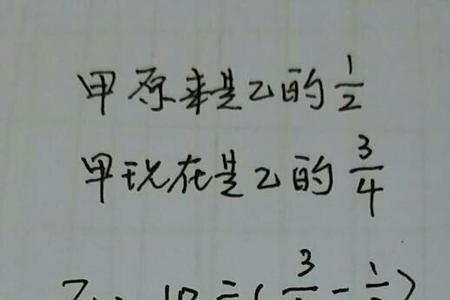 甲原来是乙的1/2
甲现在是乙的3/4
÷(3/ - 1/ )